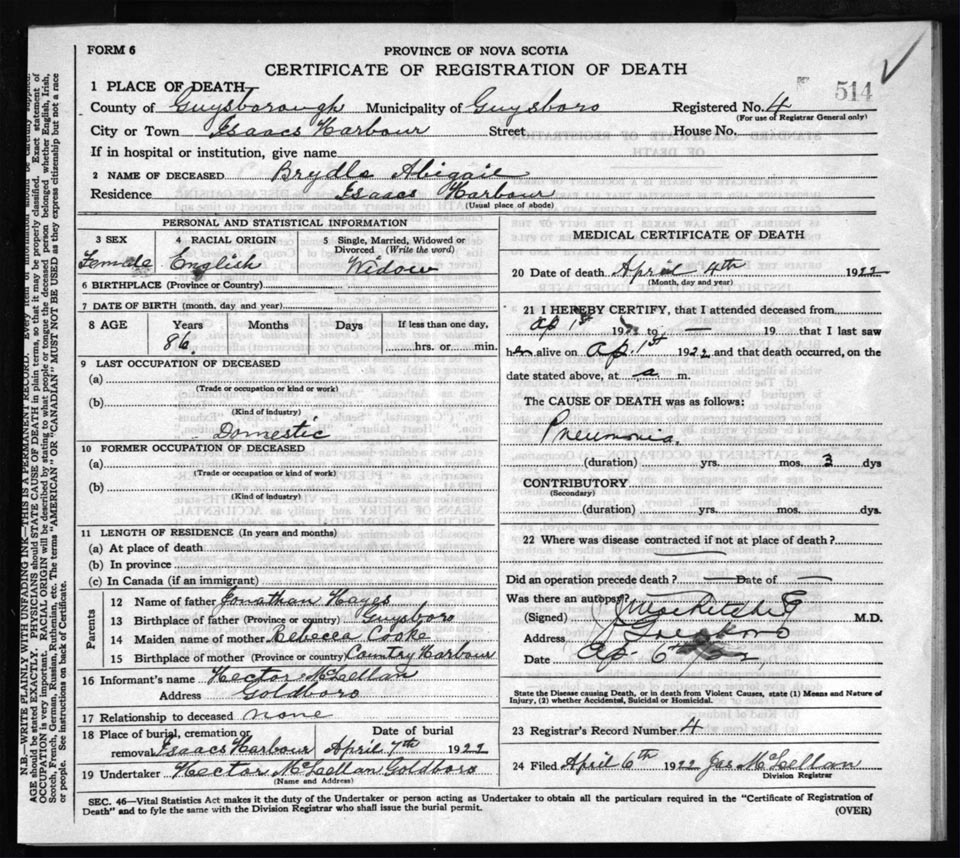 FORM 6
PROVINCE OF NOVA SCOTIA
CERTIFICATE OF REGISTRATION OF DEATH
514
1 PLACE OF DEATH,
County of Guysborough Municipality of Guysboro Registered No. 4
(For use of Registrar General only)
City or Town Isaacs Harbour Street House No.
If in hospital or institution, give name
2 NAME OF DECEASED Brydls Abigail
Residence Isaacs Harbour
(Usual place of abode)
PERSONAL AND STATISTICAL INFORMATION
3 SEX 4 RACIAL ORIGIN 5 Single, Married, Widowed or Divorced (Write the word)
Female English Widow
6 BIRTHPLACE (Province or Country)
7 DATE OF BIRTH (month, day and year)
8 AGE Years Months Days If less than one day,
86 hrs. or min.
9 LAST OCCUPATION OF DECEASED
(a)
(Trade or occupation or kind or work)
(b)
(Kind of industry)
Domestic
10 FORMER OCCUPATION OF DECEASED
(a)
(Trade or occupation or kind of work)
(b)
(Kind of industry)
11 LENGTH OF RESIDENCE (In years and months)
(a) At place of death
(b) In province
(c) In Canada (if an immigrant)
Parents
12 Name of father Jonathan Hayes
13 Birthplace of father (Province or country) Guysboro
14 Maiden name of mother Rebecca Cooke
15 Birthplace of mother (Province or country) Country Harbour
16 Informant's name Hector McLellan
Address Goldboro
17 Relationship to deceased none
18 Place of burial, cremation or Date of burial
removal Isaacs Harbour April 7th 1922
19 Undertaker Hector McLellan Goldboro
(Name and Address)
MEDICAL CERTIFICATE OF DEATH
20 Date of death April 4th 1922
(Month, day and year)
21 I HEREBY CERTIFY, that I attended deceased from
ap 1st 1922 to — 19 that I last saw
her alive on ap. 1st 1922 and that death occurred, on the
date stated above, at a m.
The CAUSE OF DEATH was as follows:
Pneumonia.
(duration) yrs. mos. 3 dys
CONTRIBUTORY
(Secondary)
(duration) yrs. mos. dys.
22 Where was disease contracted if not at place of death?
Did an operation precede death? — Date of —
Was there an autopsy?
(Signed) M.D.
Address
Date
State the Disease causing Death, or in death from Violent Causes, state (1) Means and Nature of
Injury, (2) whether Accidental, Suicidal or Homicidal.
23 Registrar's Record Number 4
24 Filed April 6th 1922 Jas McLellan
Division Registrar
SEC. 46—Vital Statistics Act makes it the duty of the Undertaker or person acting as Undertaker to obtain all the particulars required in the "Certificate of Registration of
Death" and to fyle the same with the Division Registrar who shall issue the burial permit.
(OVER)
N.B.—WRITE PLAINLY WITH UNFADING INK—THIS IS A PERMANENT RECORD. Every item of information should be carefully supplied.
AGE should be stated EXACTLY. PHYSICIANS should STATE CAUSE OF DEATH in plain terms, so that it may be properly classified. Exact statement of
OCCUPATION is very important. RACIAL ORIGIN will be described by stating to what people or tongue the deceased person belonged whether English, Irish,
Scotch, French, German, Russian, Ruthenian, etc. The terms "AMERICAN" OR "CANADIAN" MUST NOT BE USED as they express citizenship but not a race
or people. See instructions on back of Certificate.